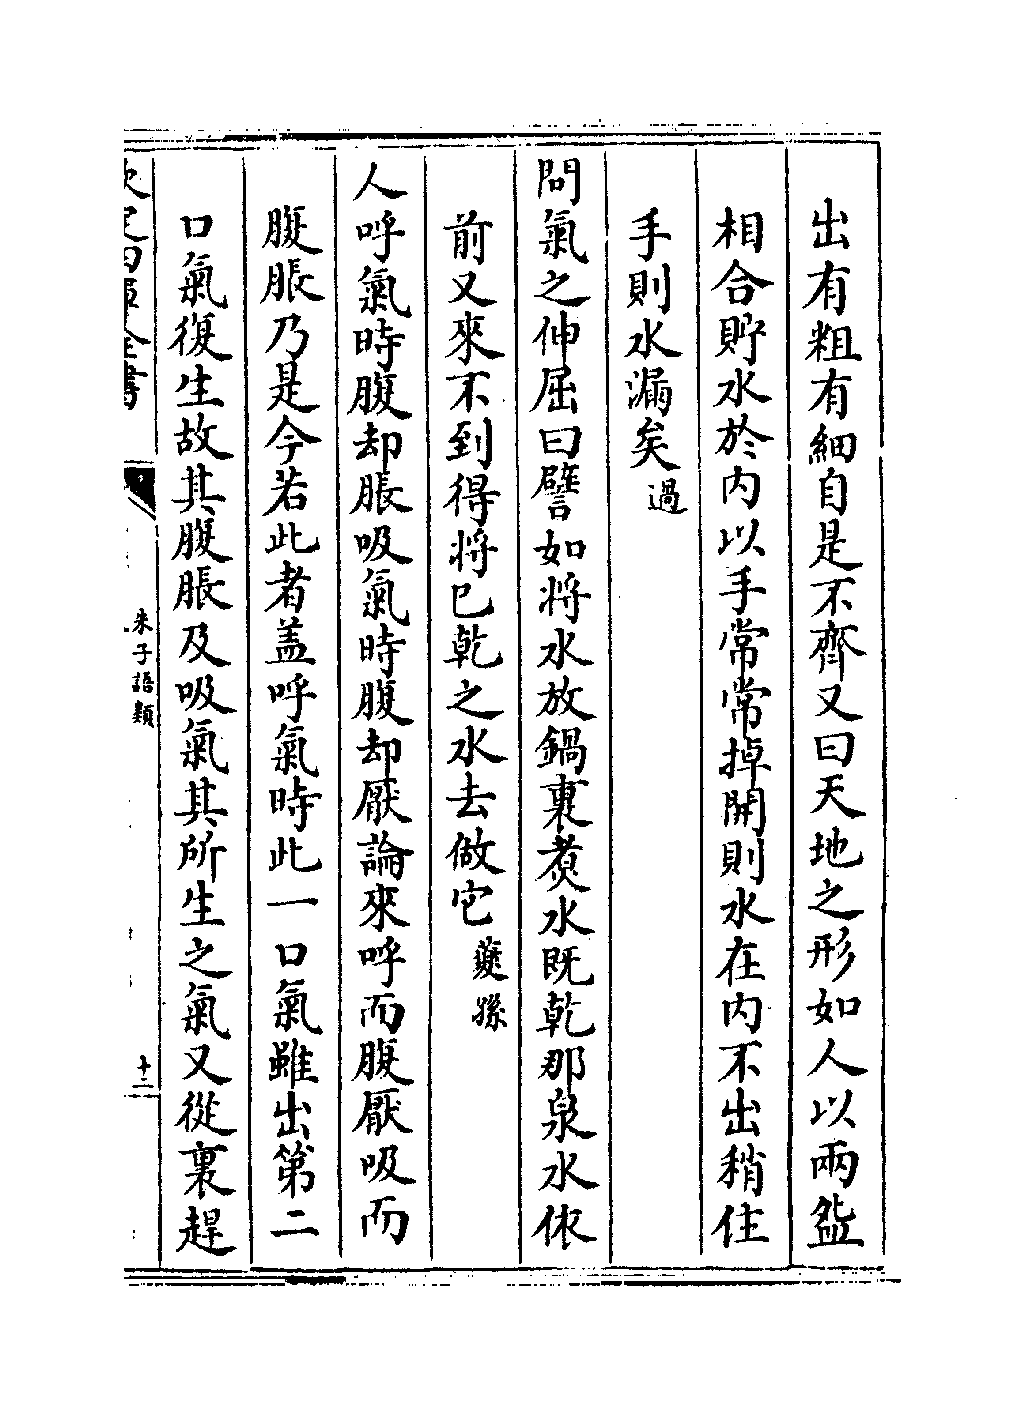 出有粗有細自是不齊又曰天地之形如人以兩盌
相合貯水於內以手常常掉開則水在內不出稍住
手則水漏矣過
問氣之伸屈曰譬如將水放鍋裏煑水既乾那泉水依
前又來不到得將已乾之水去做它夔孫
人呼氣時腹却脹吸氣時腹却厭論來呼而腹厭吸而
腹脹乃是今若此者盖呼氣時此一口氣雖出第二
口氣復生故其腹脹及吸氣其所生之氣又從裏趕
欽定四庫全書
朱子語類
十二